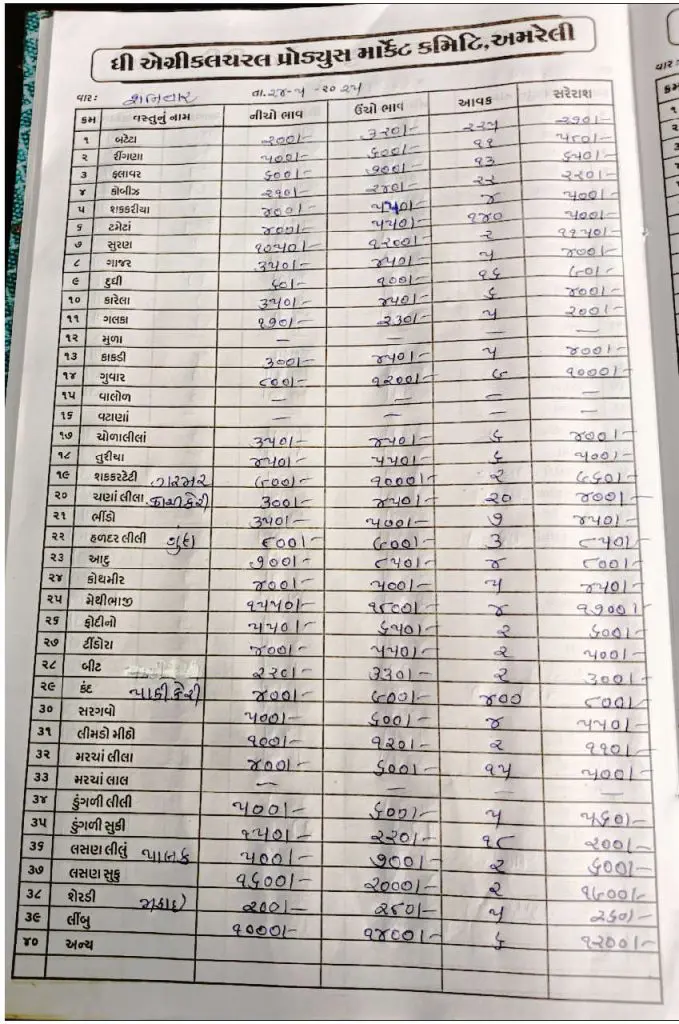 ધી એગ્રીકલ્ચરલ પ્રોડ્યુસ માર્કેટ કમિટિ,અમરેલી
વાર: શનિવાર તા.૨૪-૫-૨૦૨૫
ક્રમ વસ્તુનું નામ નીચો ભાવ ઉંચો ભાવ આવક સરેરાશ
૧ બટેટા ૨૦૦/- ૩૨૦/- ૨૨૫ ૨૭૦/-
૨ રીંગણા ૫૦૦/- ૬૦૦/- ૧૧ ૫૮૦/-
૩ ફલાવર ૬૦૦/- ૭૦૦/- ૧૩ ૬૫૦/-
૪ કોબીઝ ૨૧૦/- ૨૪૦/- ૨૨ ૨૨૦/-
૫ શકકરીયા ૪૦૦/- ૫૫૦/- ૪ ૫૦૦/-
૬ ટમેટાં ૪૦૦/- ૫૫૦/- ૧૪૦ ૫૦૦/-
૭ સુરણ ૧૦૫૦/- ૧૨૦૦/- ૨ ૧૧૫૦/-
૮ ગાજર ૩૫૦/- ૪૫૦/- ૫ ૪૦૦/-
૯ દુધી ૬૦/- ૧૦૦/- ૧૬ ૯૦/-
૧૦ કારેલા ૩૫૦/- ૪૫૦/- ૬ ૪૦૦/-
૧૧ ગલકા ૧૭૦/- ૨૩૦/- ૫ ૨૦૦/-
૧૨ મુળા — — — —
૧૩ કાકડી ૩૦૦/- ૪૫૦/- ૫ ૪૦૦/-
૧૪ ગુવાર ૮૦૦/- ૧૨૦૦/- ૯ ૧૦૦૦/-
૧૫ વાલોળ — — — —
૧૬ વટાણાં — — — —
૧૭ ચોળાલીલાં ૩૫૦/- ૪૫૦/- ૬ ૪૦૦/-
૧૮ તુરીયા ૪૫૦/- ૫૫૦/- ૬ ૫૦૦/-
૧૯ શકકરટેટી ગરમર ૯૦૦/- ૧૦૦૦/- ૨ ૯૬૦/-
૨૦ ચણાં લીલા કાચીકેરી ૩૦૦/- ૪૫૦/- ૨૦ ૪૦૦/-
૨૧ ભીંડો ૩૫૦/- ૫૦૦/- ૭ ૪૫૦/-
૨૨ હળદર લીલી ગુંદા ૮૦૦/- ૯૦૦/- ૩ ૮૫૦/-
૨૩ આદુ ૭૦૦/- ૮૫૦/- ૪ ૮૦૦/-
૨૪ કોથમીર ૪૦૦/- ૫૦૦/- ૫ ૪૫૦/-
૨૫ મેથીભાજી ૧૫૫૦/- ૧૮૦૦/- ૪ ૧૭૦૦/-
૨૬ ફોદીનો ૫૫૦/- ૬૫૦/- ૨ ૬૦૦/-
૨૭ ટીંડોરા ૪૦૦/- ૫૫૦/- ૨ ૫૦૦/-
૨૮ બીટ ૨૨૦/- ૩૩૦/- ૨ ૩૦૦/-
૨૯ કંદ પાકીકેરી ૪૦૦/- ૯૦૦/- ૪૦૦ ૮૦૦/-
૩૦ સરગવો ૫૦૦/- ૬૦૦/- ૪ ૫૫૦/-
૩૧ લીમડો મીઠો ૧૦૦/- ૧૨૦/- ૨ ૧૧૦/-
૩૨ મરચાં લીલા ૪૦૦/- ૬૦૦/- ૧૫ ૫૦૦/-
૩૩ મરચાં લાલ — — — —
૩૪ ડુંગળી લીલી ૫૦૦/- ૬૦૦/- ૫ ૫૬૦/-
૩૫ ડુંગળી સુકી ૧૫૦/- ૨૨૦/- ૧૮ ૨૦૦/-
૩૬ લસણ લીલું પાલક ૫૦૦/- ૭૦૦/- ૨ ૬૦૦/-
૩૭ લસણ સુકુ ૧૬૦૦/- ૨૦૦૦/- ૨ ૧૯૦૦/-
૩૮ શેરડી મકાઇ ૨૦૦/- ૨૮૦/- ૫ ૨૬૦/-
૩૯ લીંબુ ૧૦૦૦/- ૧૪૦૦/- ૬ ૧૨૦૦/-
૪૦ અન્ય